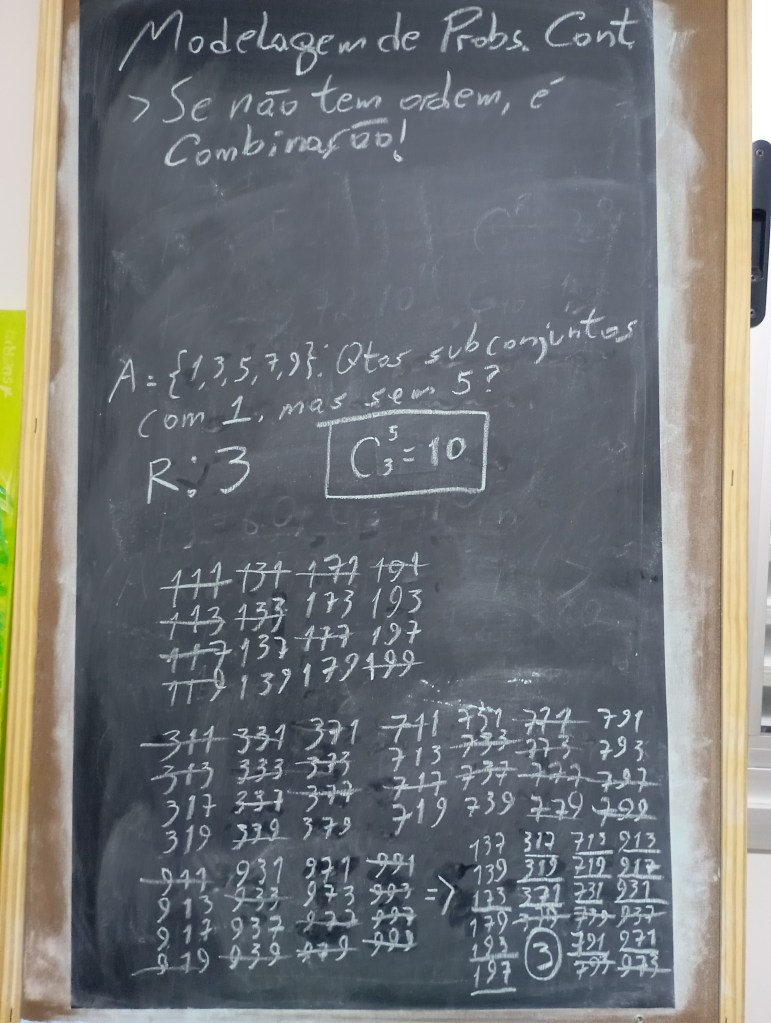 Modelagem de Probs. Cont.
> Se não tem ordem, é
Combinação!
A = {1,3,5,7,9}: Qtos subconjuntos
com 1, mas sem 5?
R: 3
C⁵₃ = 10
111 131 171 191
113 133 173 193
117 137 177 197
119 139 179 199
311 331 371
313 333 373
317 337 377
319 339 379
711 731 771 791
713 733 773 793
717 737 777 797
719 739 779 799
911 931 971 991
913 933 973 993
917 937 977 997
919 939 979 999
=>
137 317 713 913
139 319 719 917
173 371 731 931
179 379 739 937
193 3 791 971
197 793 973